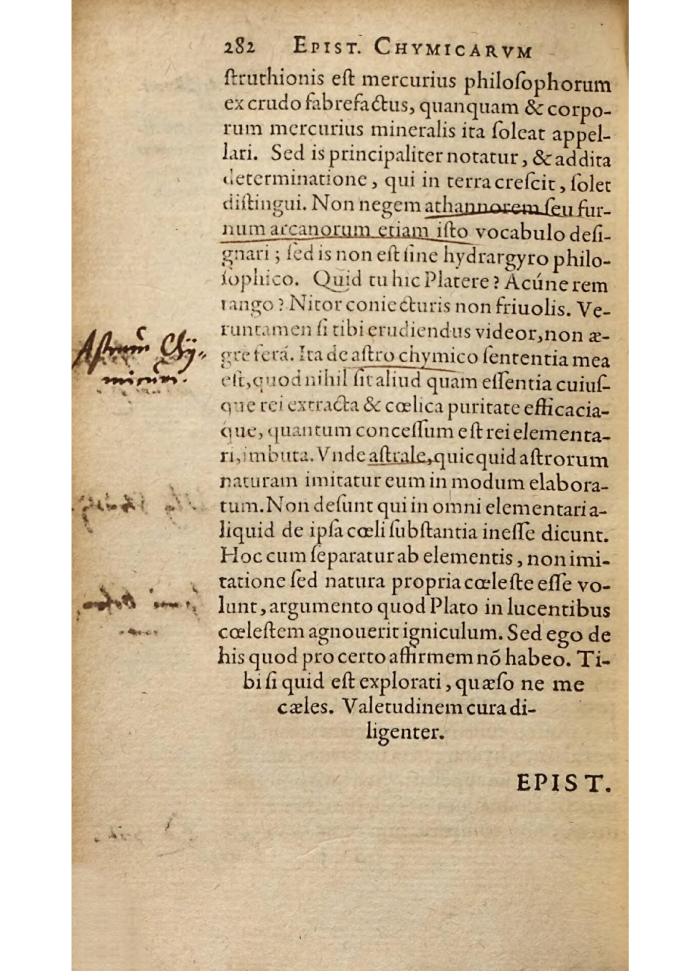 282 EPIST. CHYMICARVM
ſtruthionis eſt mercurius philoſophorum
ex crudo fabrefactus, quanquam & corpo-
rum mercurius mineralis ita ſoleat appel-
lari. Sed is principaliter notatur, & addita
determinatione, qui in terra creſcit, ſolet
diſtingui. Non negem athannorem ſeu fur-
num arcanorum etiam iſto vocabulo deſi-
gnari; ſed is non eſt ſine hydrargyro philo-
ſophico. Quid tu hic Platere? Acúne rem
tango? Nitor coniecturis non friuolis. Ve-
runtamen ſi tibi erudiendus videor, non æ-
gre ferá. Ita de aſtro chymico ſententia mea
Aſtrum Chy-
micum.
eſt, quod nihil ſit aliud quam eſſentia cuiuſ-
que rei extracta & cœlica puritate efficacia-
que, quantum conceſſum eſt rei elementa-
ri, imbuta. Vnde aſtrale, quicquid aſtrorum
naturam imitatur eum in modum elabora-
tum. Non deſunt qui in omni elementari a-
liquid de ipſa cœli ſubſtantia ineſſe dicunt.
Hoc cum ſeparatur ab elementis, non imi-
tatione ſed natura propria cœleſte eſſe vo-
lunt, argumento quod Plato in lucentibus
cœleſtem agnouerit igniculum. Sed ego de
his quod pro certo affirmem nõ habeo. Ti-
bi ſi quid eſt explorati, quæſo ne me
cæles. Valetudinem cura di-
ligenter.
EPIST.